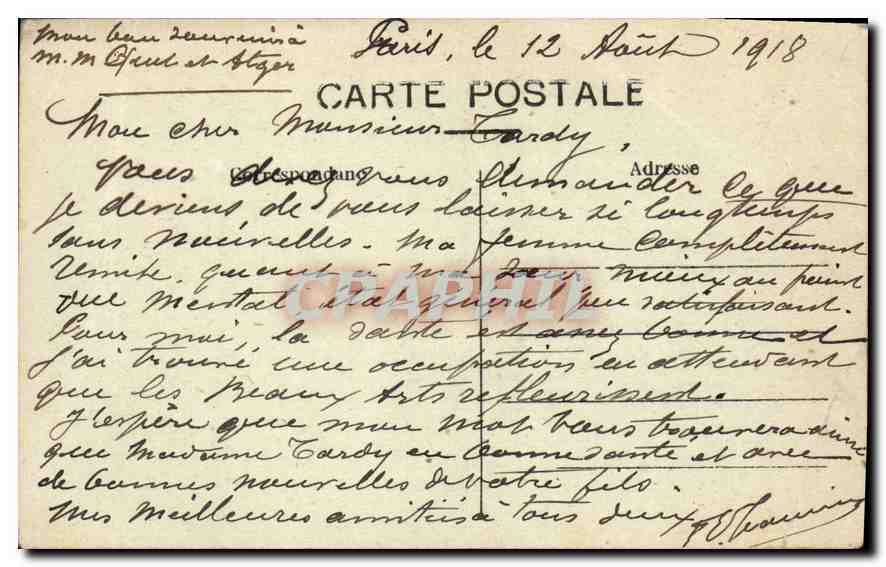 Mon bon souvenir à
M. M et Atger
Paris, le 12 Août 1918
CARTE POSTALE
Mon cher Monsieur Tardy,
Correspondance
Adresse
Vous devez vous demander ce que
je deviens de vous laisser si longtemps
sans nouvelles. Ma femme complètement
remise, quant à ma sœur mieux au point
vue mental, état général peu satisfaisant.
Pour moi, la santé est assez bonne et
j'ai trouvé une occupation en attendant
que les Beaux Arts refleurissent.
J'espère que mon mot vous trouvera ainsi
que Madame Tardy en bonne santé, et avec
de bonnes nouvelles de votre fils.
Mes meilleures amitiés à tous deux
CPAPHIL